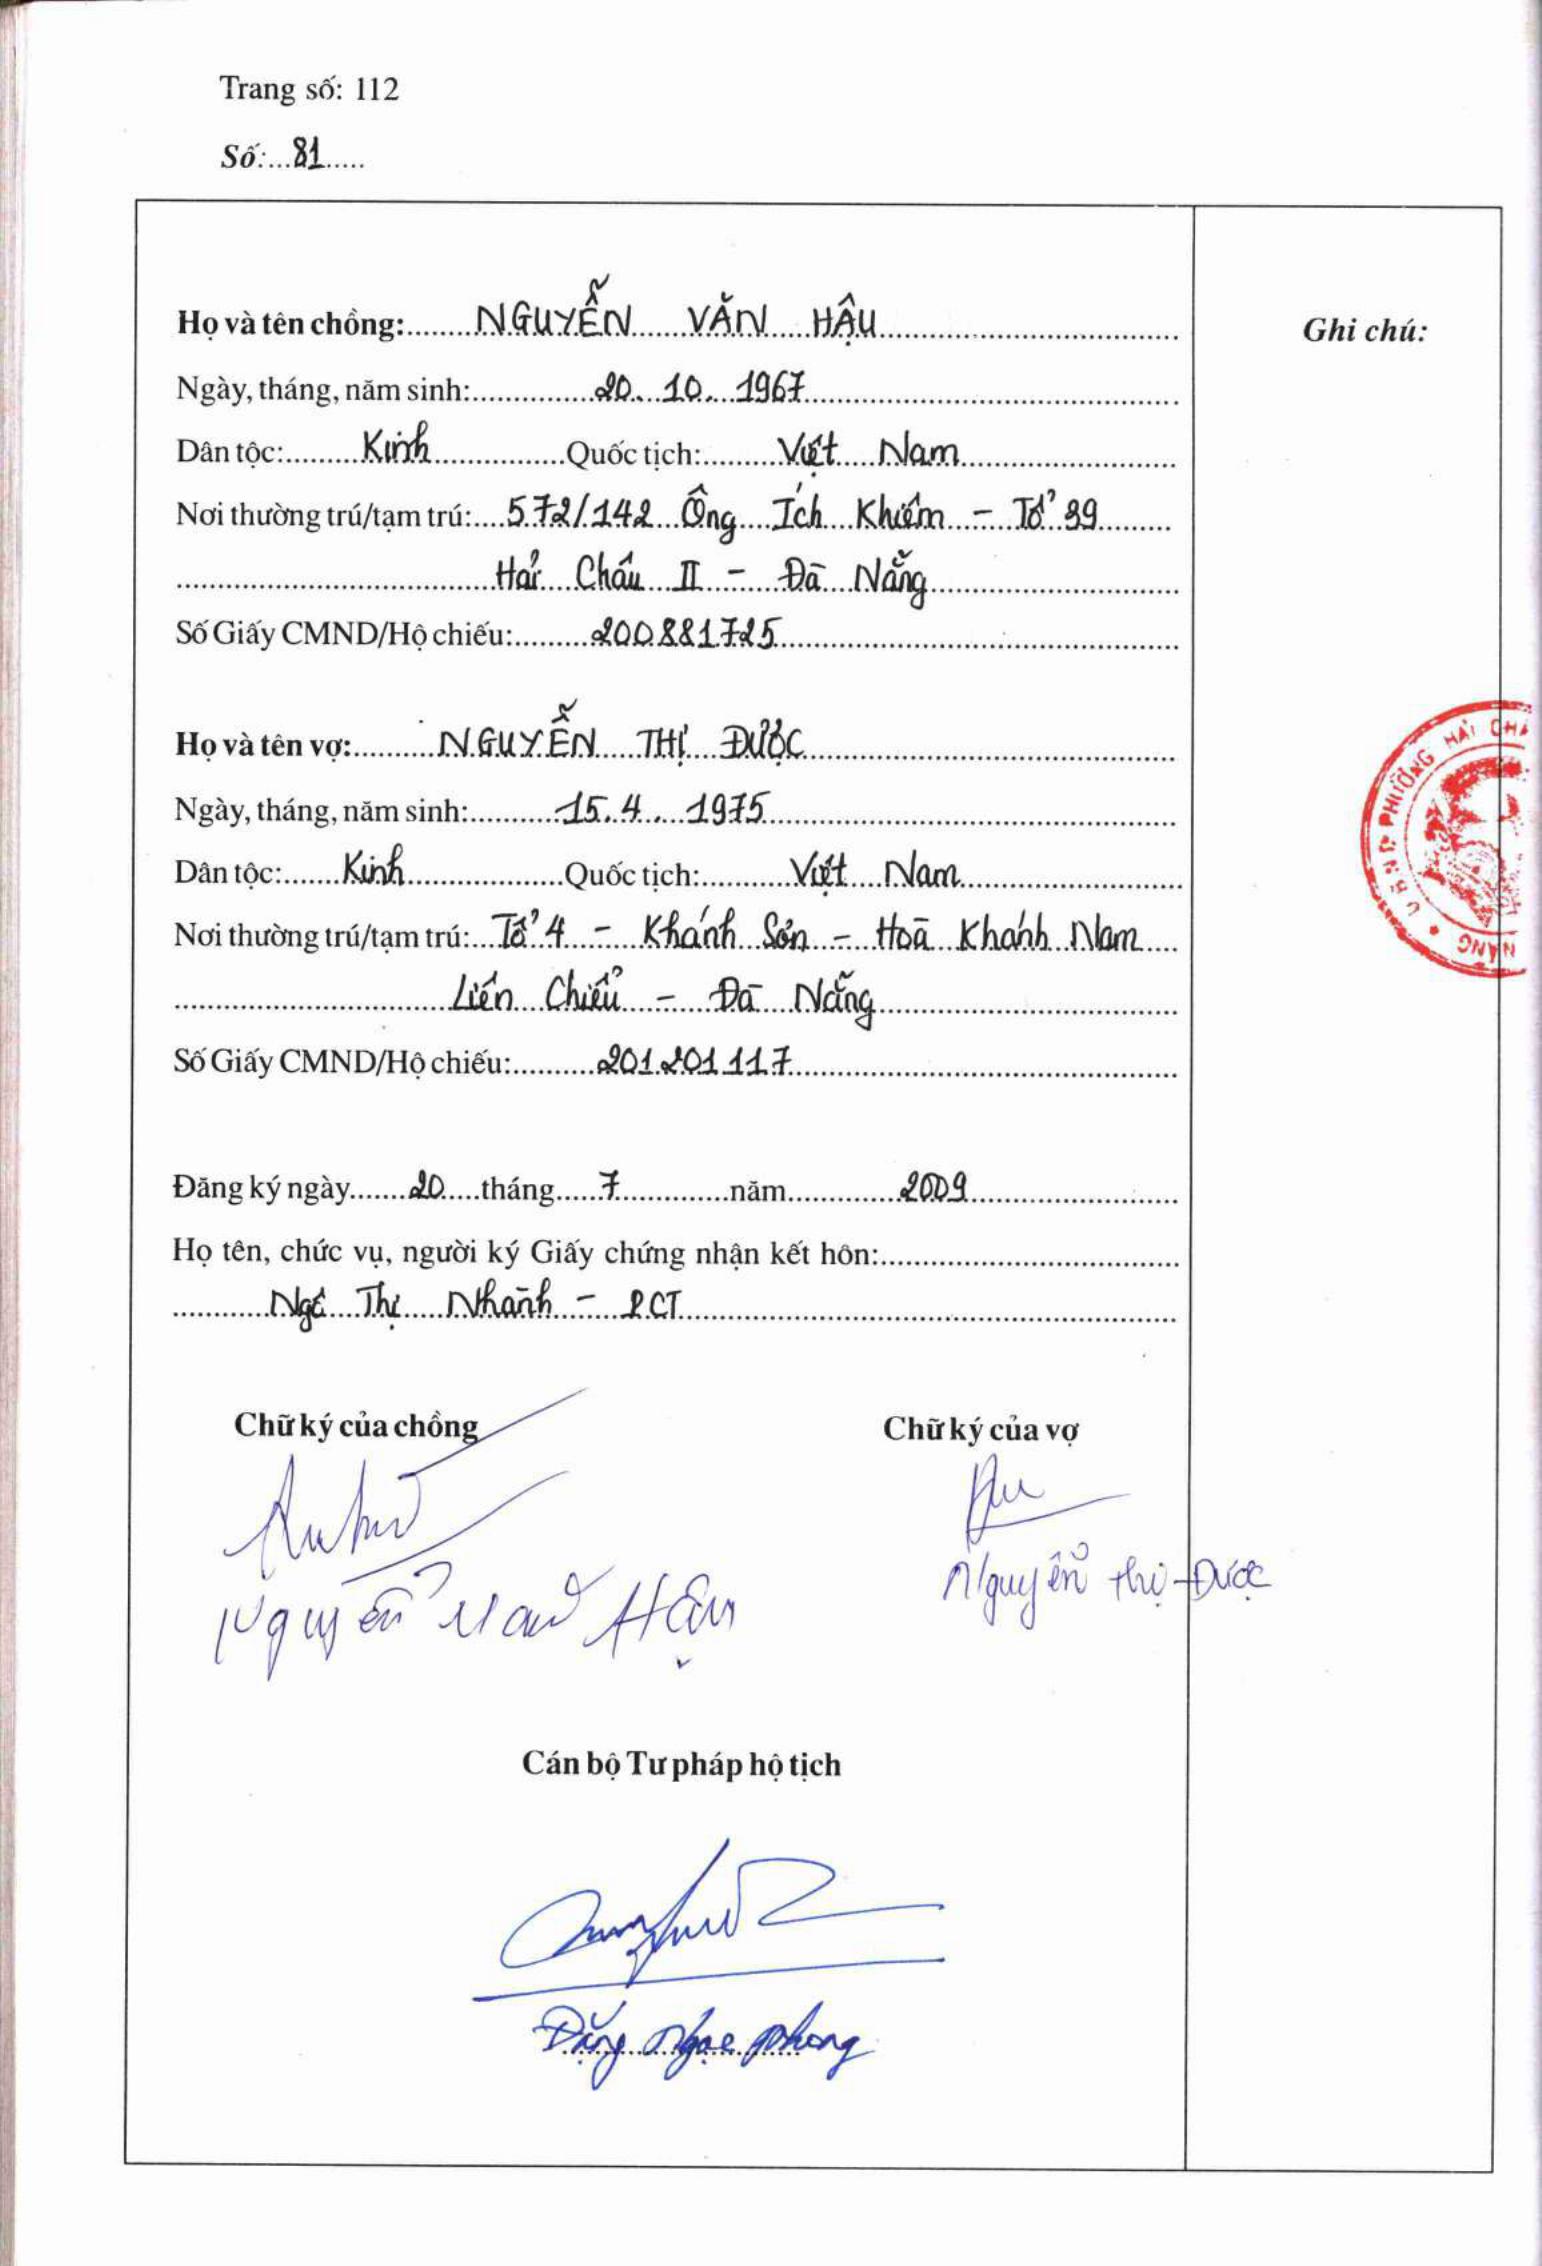 Trang số: 112
Số: 81
Họ và tên chồng: NGUYỄN VĂN HẬU
Ghi chú:
Ngày, tháng, năm sinh: 20. 10. 1967
Dân tộc: Kinh Quốc tịch: Việt Nam
Nơi thường trú/tạm trú: 572/142 Ông Ích Khiêm - Tổ 39
Hải Châu II - Đà Nẵng
Số Giấy CMND/Hộ chiếu: 200881725
Họ và tên vợ: NGUYỄN THỊ ĐƯỢC
Ngày, tháng, năm sinh: 15. 4. 1975
Dân tộc: Kinh Quốc tịch: Việt Nam
Nơi thường trú/tạm trú: Tổ 4 - Khánh Sơn - Hoà Khánh Nam
Liên Chiểu - Đà Nẵng
Số Giấy CMND/Hộ chiếu: 201201117
U.B.N.D PHƯỜNG HẢI CHÂ
NẴNG
Đăng ký ngày 20 tháng 7 năm 2009
Họ tên, chức vụ, người ký Giấy chứng nhận kết hôn:
Ngô Thị Nhành - PCT
Chữ ký của chồng Chữ ký của vợ
Nguyễn Văn Hậu Nguyễn Thị Được
Cán bộ Tư pháp hộ tịch
Đặng Ngọc Phong